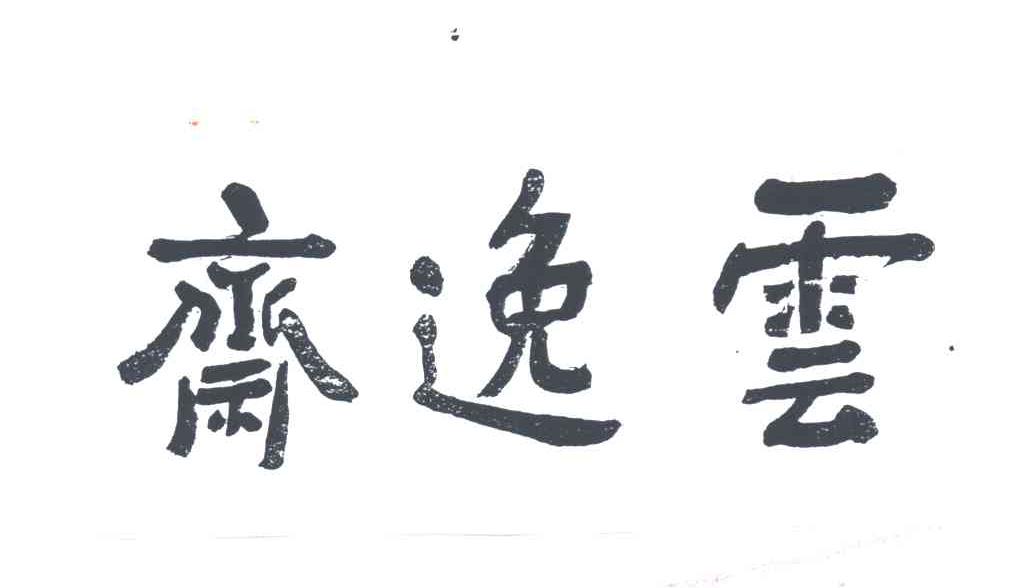 雲逸齋